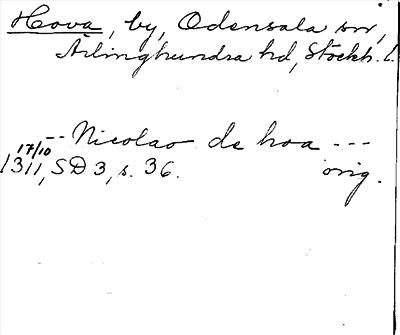 Hova, by, Odensala sn,
Ärlinghundra hd, Stockh. l.
-- Nicolao de hoa ---
17/10
1311, SD 3, s. 36. orig.